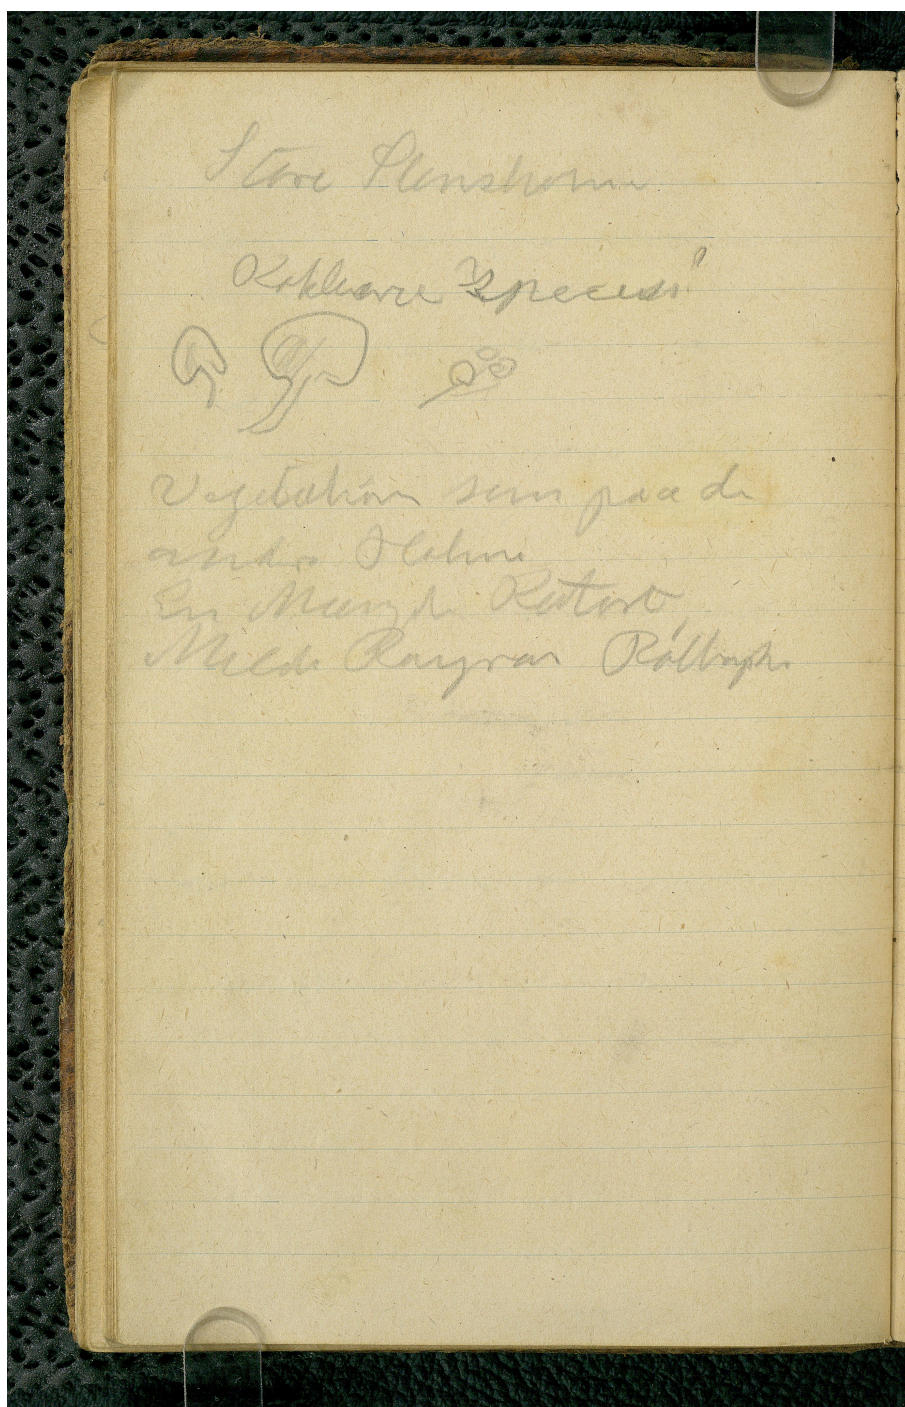 Store Stensholm
Koklearie 2 species!
Vegetation som paa de
andre Holme
En Mængde Katost
Melde Raygræs Rølleger